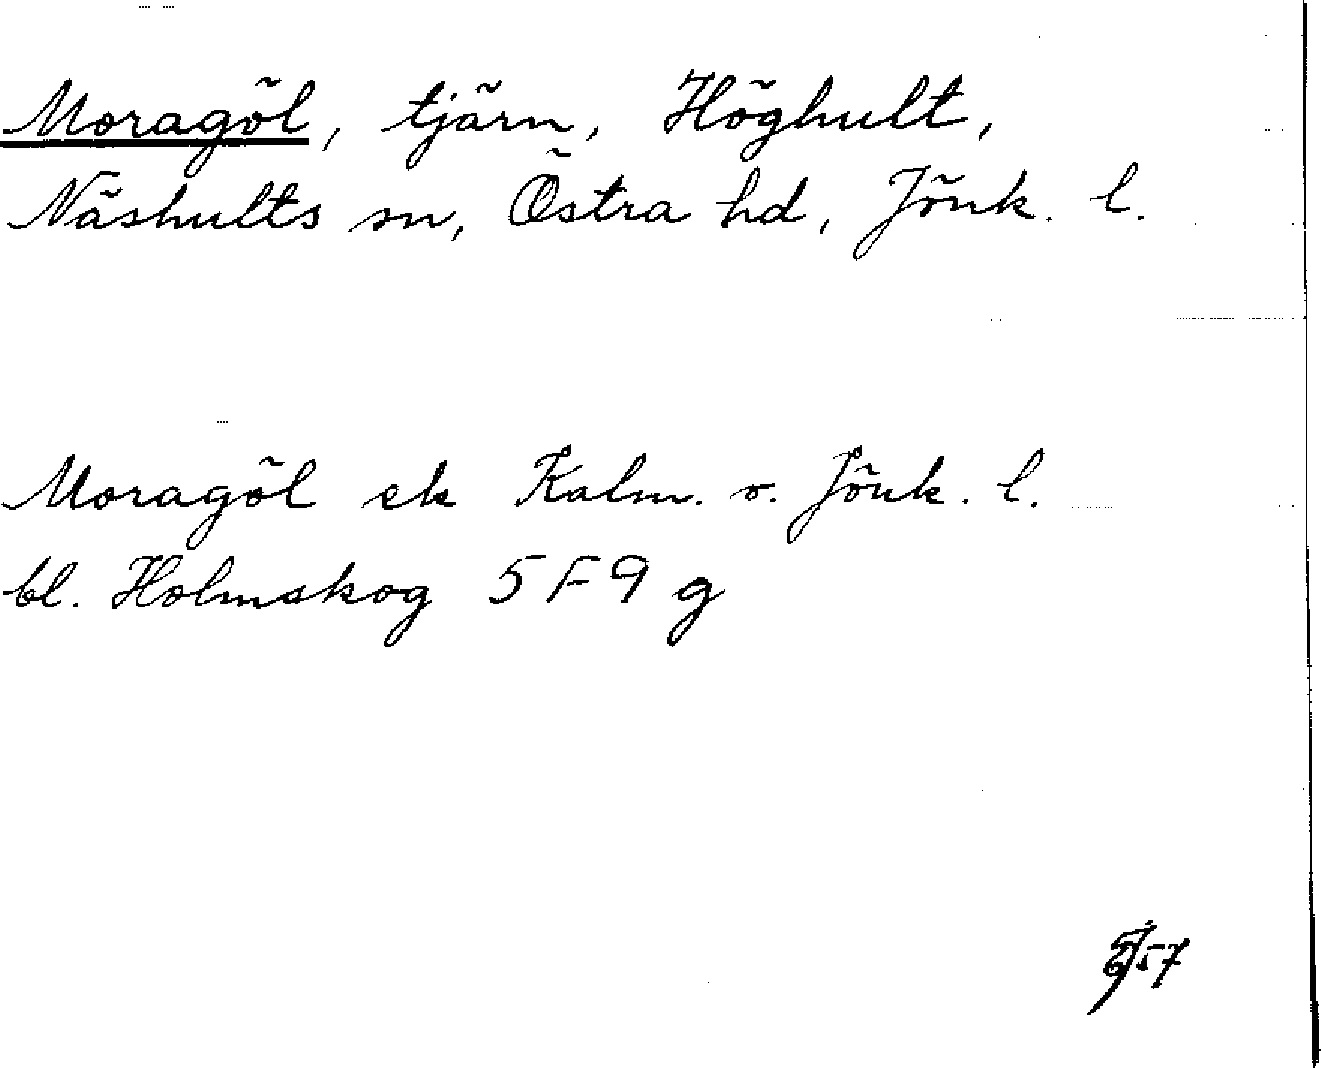 Moragöl, tjärn, Höghult,
Näshults sn, Östra hd, Jönk. l.
Moragöl ek Kalm. o. Jönk. l.
bl. Holmskog 5F9g